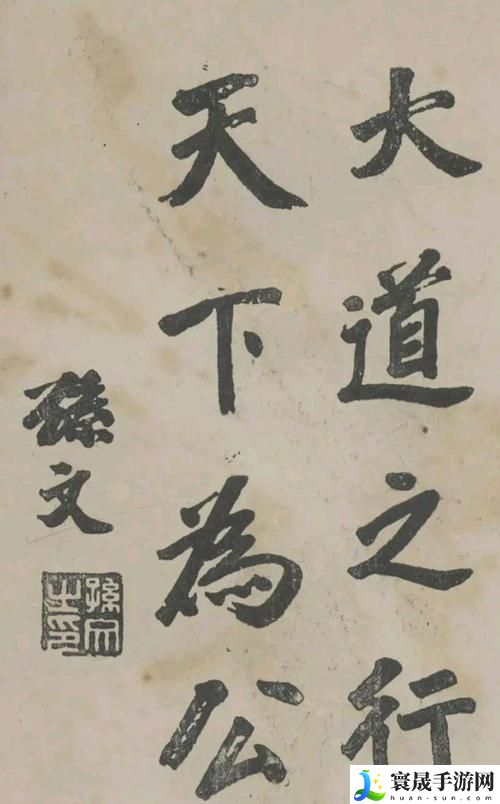 大道之行
天下為公
孫文
孫文之印
寰晟手游网
huan-sun.com